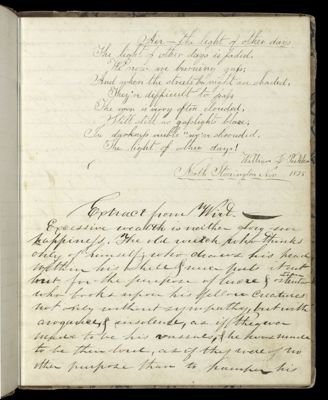 Air — The light of other days
The light of other days is faded,
We now are burning gas,
And when the streets at night are shaded,
They're difficult to pass
The moon is very often clouded,
Still still no gaslight blaze,
In darkness visible we're shrouded,
The light of other days!
William G.
North Stonington Nov 1838
Extract from Wirt.
Excessive wealth is neither glory nor
happiness. The old wretch who thinks
only of himself, who draws his head
within his shell & never puts it out
but for the purpose of lucre & ostentation
who looks upon his fellow creatures
not only without sympathy, but with
arrogance & insolence, as if they were
made to be his vassals, & he was made
to be their lord, as if they were of no
other purpose than to pamper his